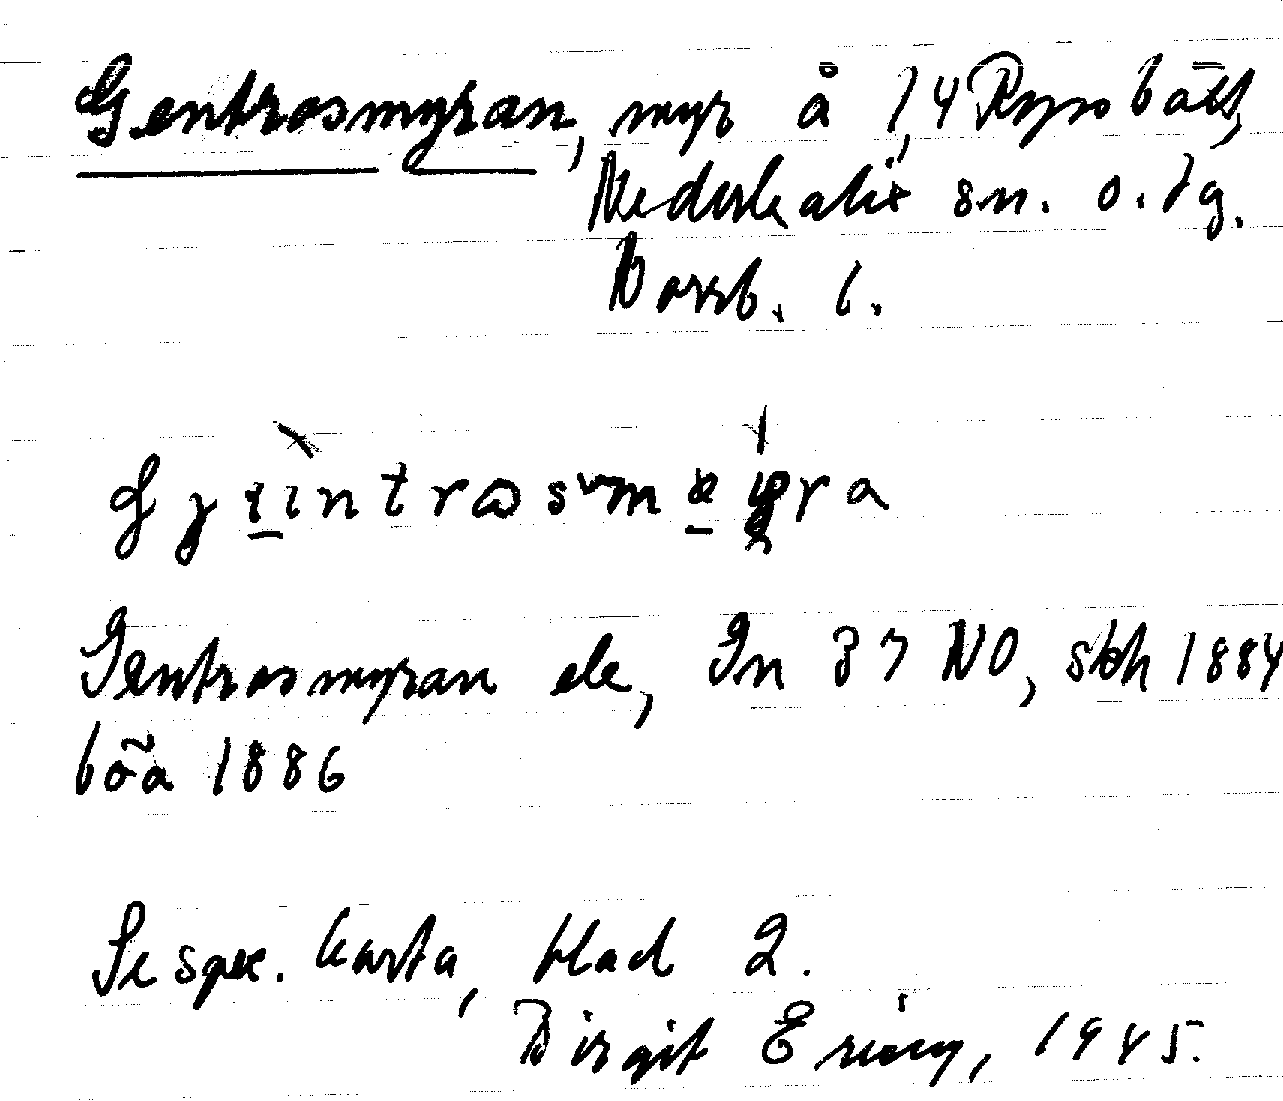 Gentrosmyran, myr å 1,4 Rysobått,
Nederkalix sn. o. tg.
Norrb. l.
Gentrosmyran ele, Jn 37 NO, skh 1884
böa 1886
Se spec. karta, blad 2.
Birgit Ericy, 1945.